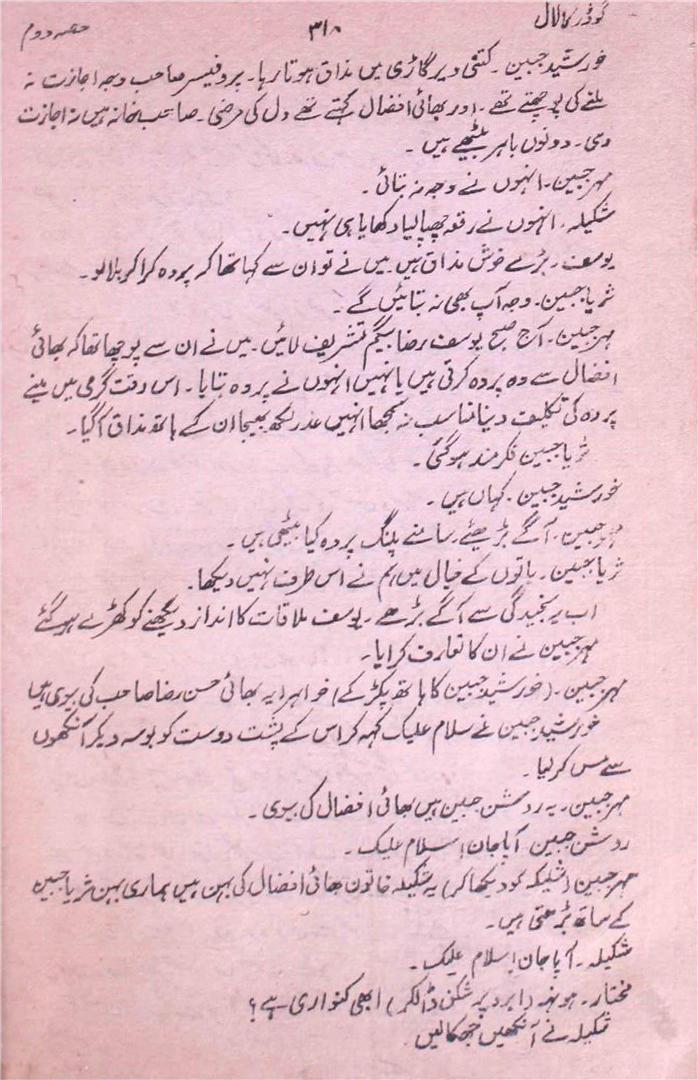 گودڑ کا لال
۳۱۸
حصہ دوم
خورشید جبین ۔ کتنی دیر گاڑی میں مذاق ہوتا رہا ۔ پروفیسر صاحب وجہ اجازت نہ
ملنے کی پوچھتے تھے ۔ اور بھائی افضال کہتے تھے دل کی مرضی ۔ صاحب خانہ ہیں نہ اجازت
دی ۔ دونوں باہر بیٹھے ہیں ۔
مہر جبین ۔ انہوں نے وجہ نہ بتائی ۔
شکیلہ ۔ انہوں نے رقعہ چھپا لیا دکھایا ہی نہیں ۔
یوسف ۔ بڑے خوش مذاق ہیں میں نے تو ان سے کہا تھا کہ پردہ کرا کر بلا لو ۔
ثریا جبین ۔ وجہ آپ بھی نہ بتائیں گے ۔
مہر جبین ۔ آج صبح یوسف رضا بیگم تشریف لائیں ۔ میں نے ان سے پوچھا تھا کہ بھائی
افضال سے وہ پردہ کرتی ہیں یا نہیں انہوں نے پردہ بتایا ۔ اس وقت گرمی میں مینے
پردہ کی تکلیف دینا مناسب نہ سمجھا انہیں عذر لکھ بھیجا ان کے ہاتھ مذاق آ گیا ۔
ثریا جبین فکر مند ہو گئی ۔
خورشید جبین ۔ کہاں ہیں ۔
مہر جبین ۔ آگے بڑھیئے سامنے پلنگ پر دہ کیا بیٹھی ہیں ۔
ثریا جبین ۔ باتوں کے خیال میں ہم نے اس طرف نہیں دیکھا ۔
اب یہ سنجیدگی سے آگے بڑھے ۔ یوسف ملاقات کا انداز دیکھنے کو کھڑے ہو گئے
مہر جبین نے ان کا تعارف کرایا ۔
مہر جبین ۔ (خورشید جبین کا ہاتھ پکڑ کے) خواہر ایہ بھائی حسن رضا صاحب کی بیوی ہیں
خورشید جبین نے سلام علیک کہہ کر اس کے پشت دوست کو بوسہ دیکر آنکھوں
سے مس کر لیا ۔
مہر جبین ۔ یہ روشن جبین ہیں بھائی افضال کی بیوی ۔
روشن جبین آپا جان ! سلام علیک ۔
مہر جبین (شکیلہ کو دیکھا کر) یہ شکیلہ خاتون بھائی افضال کی بہن ہیں ہماری بہن ثریا جبین
کے ساتھ پڑھتی ہیں ۔
شکیلہ ۔ آپا جان ! سلام علیک ۔
مختار ۔ ہونہہ (ابرو پر شکن ڈالکر) ابھی کنواری ہے ؟
شکیلہ نے آنکھیں جھکالیں